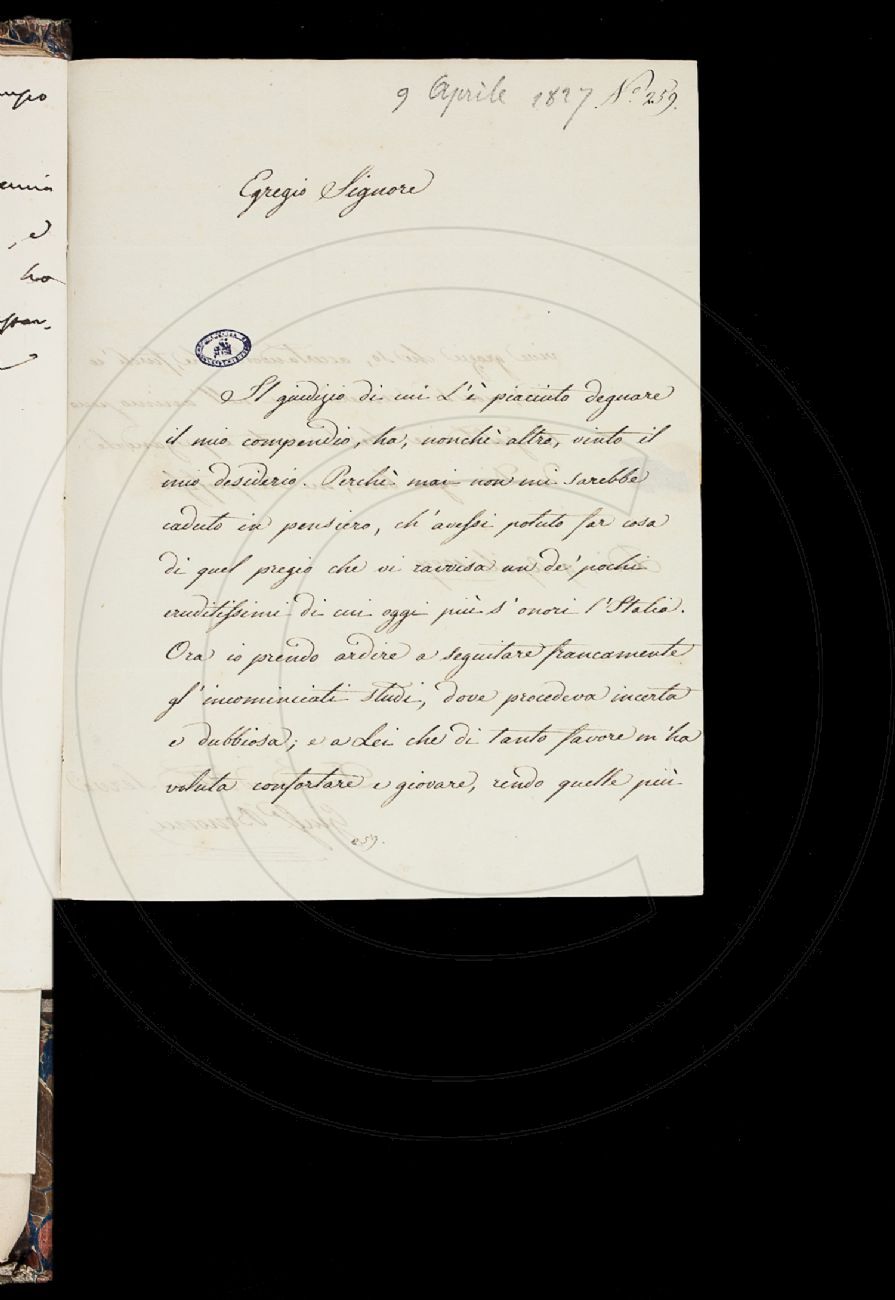 9 Aprile 1827 N.º 259.
Egregio Signore
Il giudizio di cui L'è piaciuto degnare
il mio compendio, ha, nonchè altro, vinto il
mio desiderio. Perchè mai non mi sarebbe
caduto in pensiero, ch'avessi potuto far cosa
di quel pregio che vi ravvisa un de' pochi
eruditissimi di cui oggi più s'onori l'Italia.
Ora io prendo ardire a seguitare francamente
gl'incominciati studi, dove procedeva incerta
e dubbiosa; e a Lei che di tanto favore m'ha
voluta confortare e giovare, rendo quelle più
259.